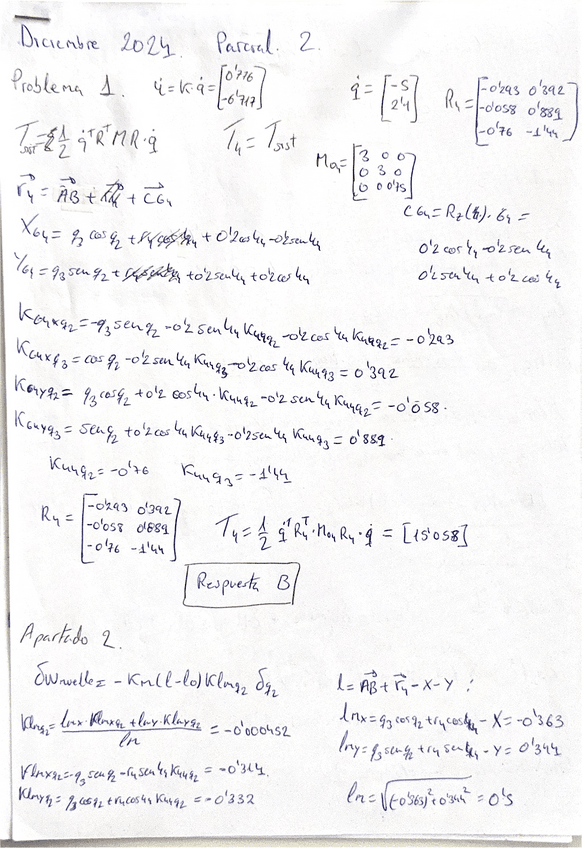 Diciembre 2024. Parcial. 2.
Problema 1. u̇ = K·q̇ = [0'776; -6'717] q̇ = [-5; 2'4] R4 = [-0'293 0'392; -0'058 0'889; -0'76 -1'44]
Tsist = 1/2 q̇ᵀRᵀMR·q̇ T4 = Tsist MG4 = [3 0 0; 0 3 0; 0 0 0'075]
r⃗4 = AB⃗ + CG4⃗
CG4 = Rz(φ4)·δ4 =
XG4 = q3 cosq2 + 0'2cosφ4 - 0'2senφ4 0'2cosφ4 - 0'2senφ4
YG4 = q3 senq2 + 0'2senφ4 + 0'2cosφ4 0'2senφ4 + 0'2cosφ4
KG4xq2 = -q3 senq2 - 0'2senφ4 Kφ4q2 - 0'2cosφ4 Kφ4q2 = -0'293
KG4xq3 = cosq2 - 0'2senφ4 Kφ4q3 - 0'2cosφ4 Kφ4q3 = 0'392
KG4yq2 = q3 cosq2 + 0'2 cosφ4·Kφ4q2 - 0'2senφ4 Kφ4q2 = -0'058.
KG4yq3 = senq2 + 0'2cosφ4 Kφ4q3 - 0'2senφ4 Kφ4q3 = 0'889.
Kφ4q2 = -0'76 Kφ4q3 = -1'44
R4 = [-0'293 0'392; -0'058 0'889; -0'76 -1'44] T4 = 1/2 q̇ᵀR4ᵀ·MG4 R4·q̇ = [15'058]
Respuesta B
Apartado 2.
δWmuelle = -Km(l-lo)Klmq2 δq2 l = AB⃗ + r⃗4 - X - Y :
Klmq2 = (lmx·Klmxq2 + lmy·Klmyq2)/lm = -0'000452 lmx = q3 cosq2 + r4cosφ4 - X = -0'363
lmy = q3 senq2 + r4 senφ4 - Y = 0'344
Klmxq2 = -q3 senq2 - r4senφ4 Kφ4q2 = -0'314.
Klmyq2 = q3cosq2 + r4cosφ4 Kφ4q2 = -0'332 lm = √((-0'363)² + 0'344²) = 0'5